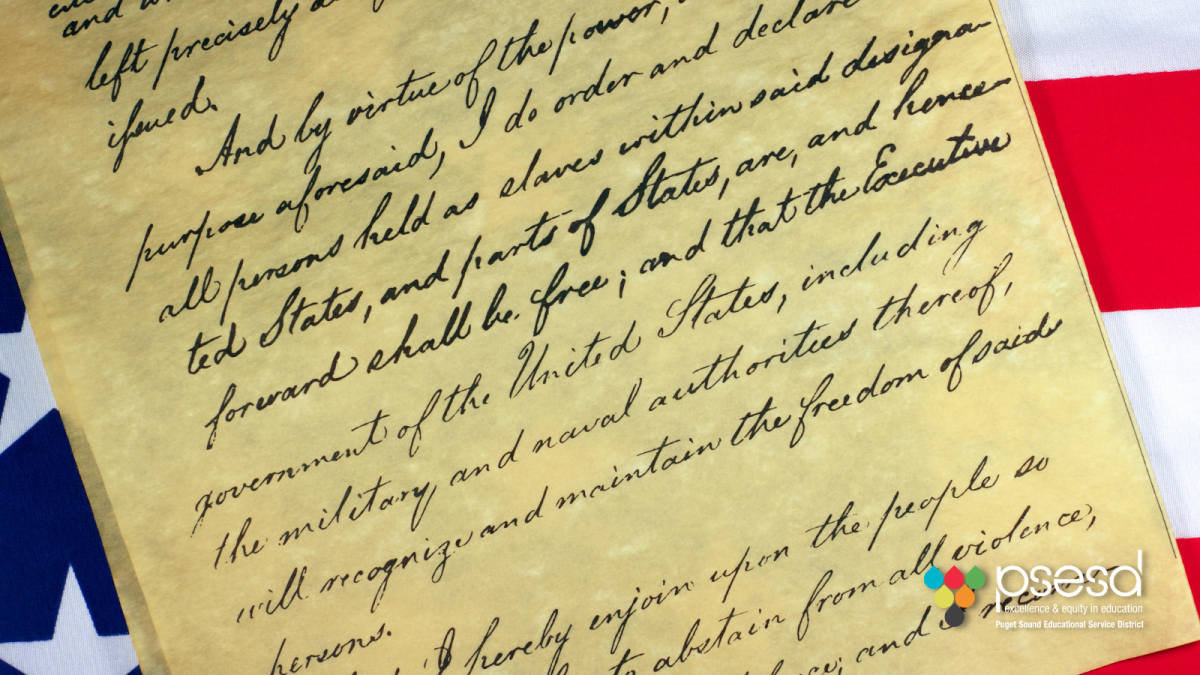 and
left precisely
issued.
And by virtue of the power,
purpose aforesaid, I do order and declare
all persons held as slaves within said designa-
ted States, and parts of States, are, and hence-
forward shall be free; and that the Executive
government of the United States, including
the military and naval authorities thereof,
will recognize and maintain the freedom of said
persons.
I hereby enjoin upon the people so
to abstain from all violence,
and I recom-
psesd
excellence & equity in education
Puget Sound Educational Service District